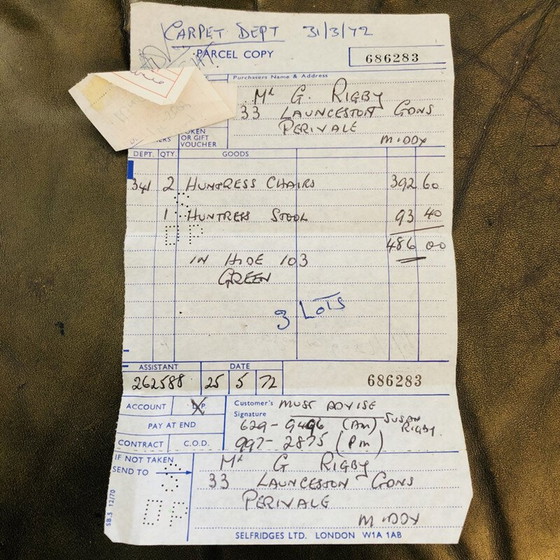 CARPET DEPT 31/3/72
PARCEL COPY
686283
Purchasers Name & Address
Mr G. RIGBY
33 LAUNCESTON GDNS
PERIVALE
MIDDX
TOKEN
OR GIFT
VOUCHER
DEPT. QTY GOODS
341 2 HUNTRESS CHAIRS 392 60
1 HUNTRESS STOOL 93 40
486 00
IN HIDE 103
GREEN
3 LOTS
ASSISTANT DATE
262588 25 5 72 686283
ACCOUNT
PAY AT END
CONTRACT C.O.D.
Customer's Signature MUST ADVISE
629-9496 (AM) SUSAN RIGBY
997-2875 (PM)
IF NOT TAKEN
SEND TO
Mr G RIGBY
33 LAUNCESTON GDNS
PERIVALE
MIDDX
SB.3 12/70
SELFRIDGES LTD. LONDON W1A 1AB